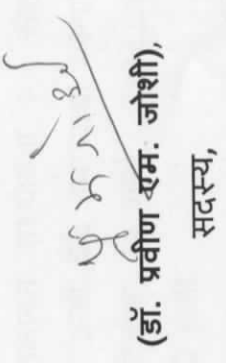 (डॉ. प्रवीण एम. जोशी),
सदस्य,